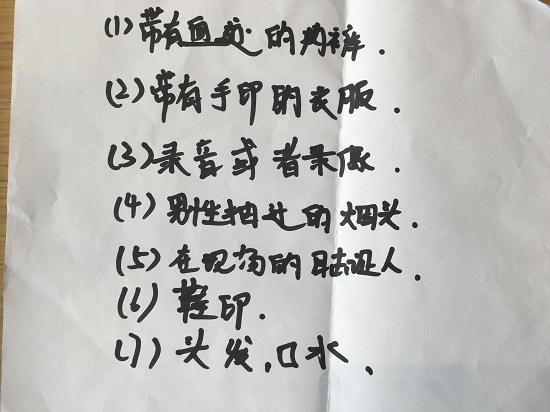 (1)带有血迹的内裤.
(2)带有手印的衣服.
(3)录音或者录像.
(4)男性抽过的烟头.
(5)在现场的目击证人.
(6)鞋印.
(7)头发,口水.